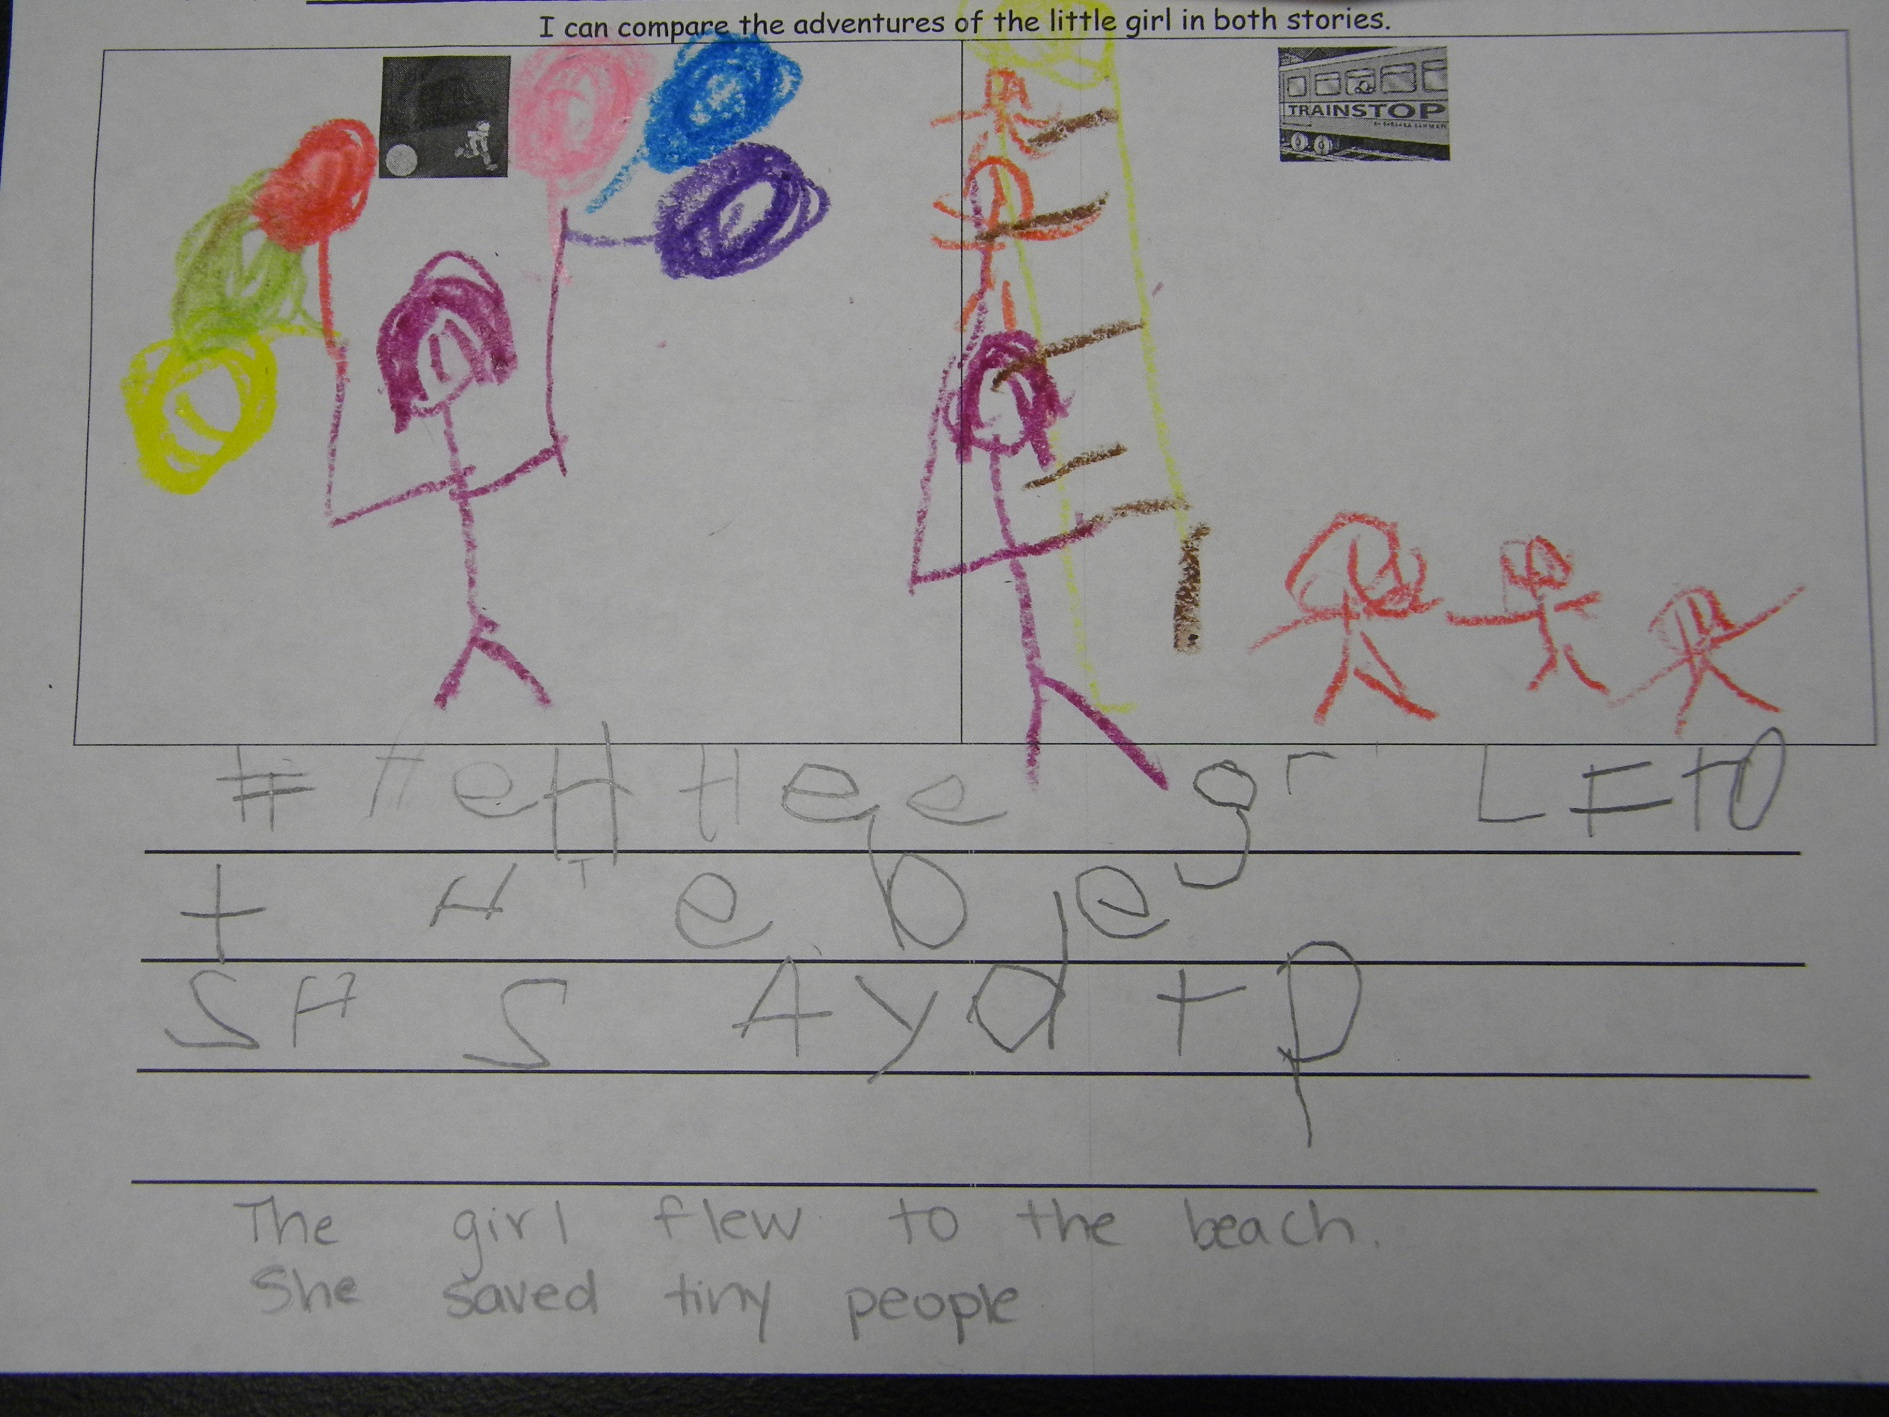 I can compare the adventures of the little girl in both stories.
TRAINSTOP
gr L F t O
t H T e b e
S H S A y d t p
The girl flew to the beach.
She saved tiny people